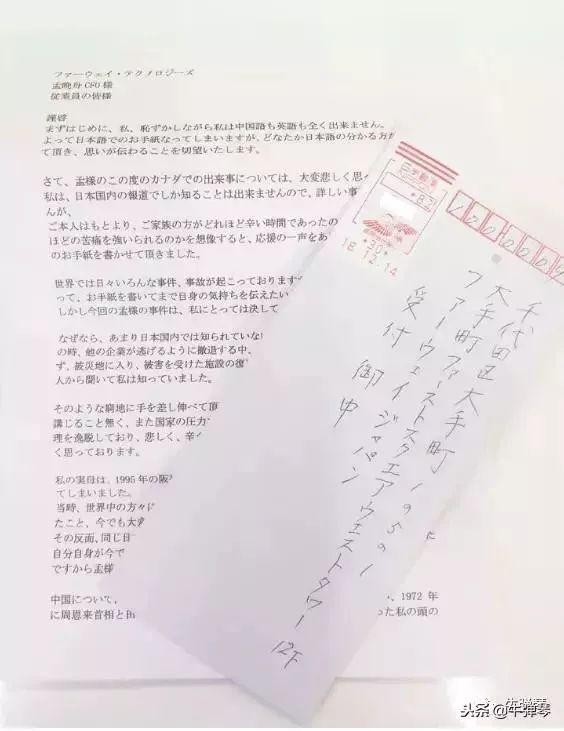 ファーウェイ・テクノロジーズ
孟晩舟 CFO 様
従業員の皆様
謹啓
まずはじめに、私、恥ずかしながら私は中国語も英語も全く出来ません。
よって日本語でのお手紙なってしまいますが、どなたか日本語の分かる方
て頂き、思いが伝わることを切望いたします。
さて、孟様のこの度のカナダでの出来事については、大変悲しく思
私は、日本国内の報道でしか知ることは出来ませんので、詳しい事
んが、
ご本人はもとより、ご家族の方がどれほど辛い時間であったの
ほどの苦痛を強いられるのかを想像すると、応援の一声をあ
のお手紙を書かせて頂きました。
世界では日々いろんな事件、事故が起こっております
って、お手紙を書いてまで自身の気持ちを伝えたい
しかし今回の孟様の事件は、私にとっては決して
なぜなら、あまり日本国内では知られていな
の時、他の企業が逃げるように撤退する中、
ず、被災地に入り、被害を受けた施設の復
人から聞いて私は知っていました。
そのような窮地に手を差し伸べて頂
講じること無く、また国家の圧力
理を逸脱しており、悲しく、辛
く思っております。
私の実母は、1995 年の阪
てしまいました。
当時、世界中の方々に
たこと、今でも大
その反面、同じ目
自分自身が今で
ですから孟様
中国について、
、1972 年
に周恩来首相と
った私の頭の
82
30
18 12.14
千代田区大手町1-5-1
大手町ファーストスクエアウェストタワー12F
ファーウェイジャパン
受付 御中
头条 @牛弹琴